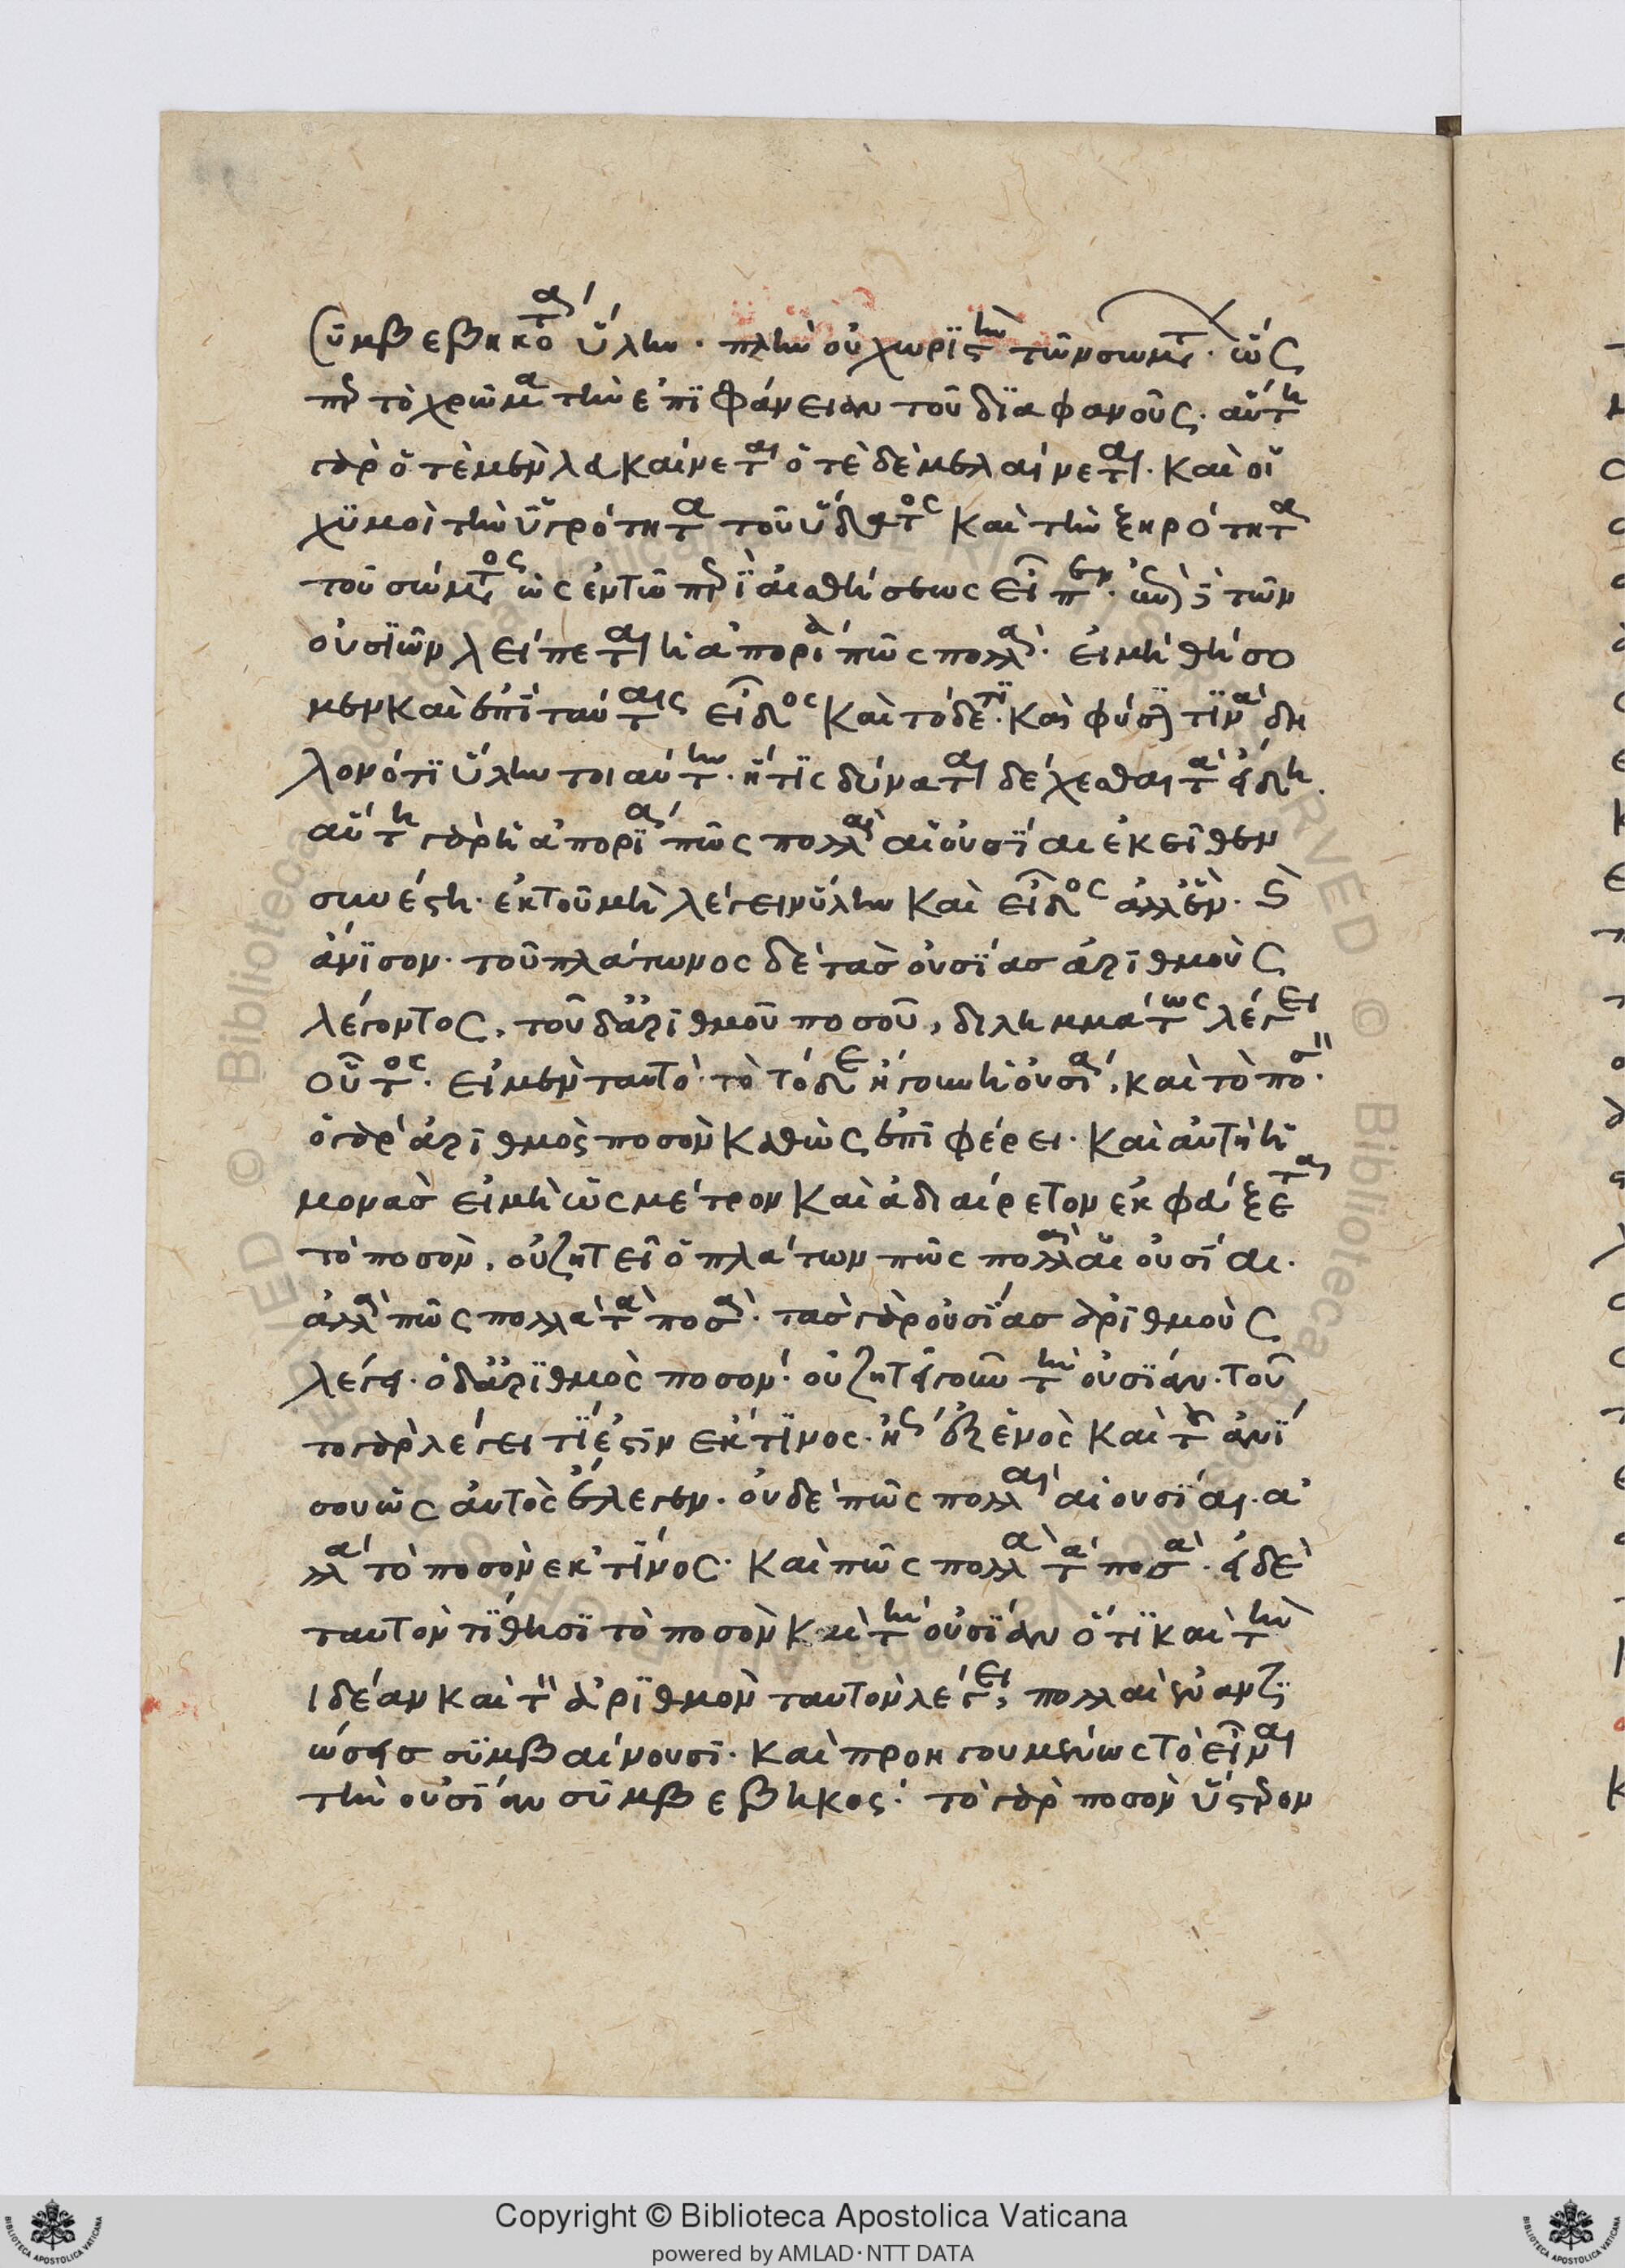 συμβεβηκότα ὕλην· πλὴν οὐ χωριστὴν τῶν σωμάτων· ὥς
περ τὸ χρῶμα τὴν ἐπιφάνειαν τοῦ διαφανοῦς· αὕτη
γὰρ ὁτὲ μὲν λευκαίνεται ὁτὲ δὲ μελαίνεται· καὶ οἱ
χυμοὶ τὴν ὑγρότητα τοῦ ὕδατος καὶ τὴν ξηρότητα
τοῦ σώματος ὡς ἐν τῶ περὶ αἰσθήσεως εἶπεν· τῶν
οὐσιῶν λείπεται ἡ ἀπορία πῶς πολλαί· εἰ μὴ θήσο
μεν καὶ ἐπὶ ταύταις εἶδος καὶ τόδε τι· καὶ φύσιν τινὰ δη
λονότι ὕλην τοιαύτην· ἥτις δύναται δέχεσθαι τὰ εἴδη.
αὕτη γὰρ ἡ ἀπορία πῶς πολλαὶ αἱ οὐσίαι ἐκεῖθεν
συνέστη· ἐκ τοῦ μὴ λέγειν ὕλην καὶ εἶδος ἀλλ' ἓν· καὶ
ἄνισον· τοῦ πλάτωνος δὲ τὰς οὐσίας ἀριθμοὺς
λέγοντος, τοῦ δ' ἀριθμοῦ ποσοῦ, διλημμάτως λέγει
οὗτος· εἰ μὲν ταυτὸ· τὸ τόδε ἤγουν ἡ οὐσία, καὶ τὸ ποσόν·
ὁ γὰρ ἀριθμὸς ποσὸν καθὼς ἐπιφέρει· καὶ αὐτὴ ἡ
μονὰς εἰ μὴ ὡς μέτρον καὶ ἀδιαίρετον ἐκφεύξεται
τὸ ποσὸν, οὐ ζητεῖ ὁ πλάτων πῶς πολλαὶ αἱ οὐσίαι.
ἀλλὰ πῶς πολλὰ τὰ ποσὰ· τὰς γὰρ οὐσίας ἀριθμοὺς
λέγει· ὁ δ' ἀριθμὸς ποσον· οὐ ζητεῖ γοῦν τὴν οὐσίαν· τοῦ
το γὰρ λέγει τί ἐστιν ἐκ τίνος· ἐξ ἑνὸς καὶ τοῦ ἀνί
σου ὡς αὐτὸς ἔλεγεν· οὐδὲ πῶς πολλαὶ αἱ οὐσίαι· ἀ
λλὰ τὸ ποσὸν ἐκ τίνος· καὶ πῶς πολλὰ τὰ ποσὰ· εἰ δὲ
ταυτὸν τίθησι τὸ ποσὸν καὶ τὴν οὐσίαν ὅτι καὶ τὴν
ἰδέαν καὶ τὸν ἀριθμὸν ταυτὸν λέγει, πολλαὶ ἐναντι
ώσεις συμβαίνουσι· καὶ προηγουμένως τὸ εἶναι
τὴν οὐσίαν συμβεβηκός· τὸ γὰρ ποσὸν ὕστερον
Copyright © Biblioteca Apostolica Vaticana
powered by AMLAD·NTT DATA